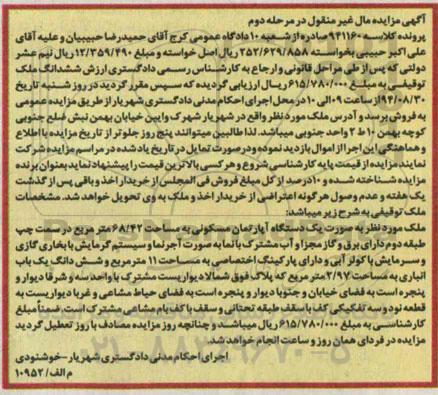 آگهی مزایده مال غیر منقول در مرحله دوم
پرونده کلاسه ۹۴۱۱۶۰ صادره از شعبه ۱۰ دادگاه عمومی کرج آقای حمیدرضا حبیبیان و علیه آقای
علی اکبر حبیبی بخواسته ۲۵۲/۶۲۹/۸۵۸ ریال اصل خواسته و مبلغ ۱۲/۳۵۹/۴۹۰ ریال نیم عشر
دولتی که پس از طی مراحل قانونی و ارجاع به کارشناس رسمی دادگستری ارزش ششدانگ ملک
توقیفی به مبلغ ۶۱۵/۷۸۰/۰۰۰ ریال ارزیابی گردیده که سپس مقرر گردید در روز شنبه تاریخ
۹۴/۰۸/۳۰ از ساعت ۹ الی ۱۰ در محل اجرای احکام مدنی دادگستری شهریار از طریق مزایده عمومی
به فروش برسد و آدرس ملک مورد نظر واقع در شهریار شهرک وایین خیابان بهمن نبش ضلع جنوبی
کوچه بهمن ۱۰ ط ۲ واحد جنوبی میباشد. لذا طالبین میتوانند پنج روز جلوتر از تاریخ مزایده با اطلاع
و هماهنگی این اجرا از اموال بازدید نموده و در صورت تمایل در تاریخ یاد شده در مراسم مزایده شرکت
نمایند مزایده از قیمت پایه کارشناسی شروع و هر کسی بالاترین قیمت را پیشنهاد نماید بعنوان برنده
مزایده شناخته شده و ۱۰ درصد از کل مبلغ فروش فی المجلس از خریدار اخذ و باقی پس از گذشت
یک هفته و عدم وصول هرگونه اعتراضی از خریدار اخذ و ملک به وی تحویل خواهد شد. مشخصات
ملک توقیفی به شرح زیر میباشد:
ملک مورد نظر به صورت یک دستگاه آپارتمان مسکونی به مساحت ۶۸/۴۲ متر مربع در سمت چپ
طبقه دوم دارای برق و گاز مجزا و آب مشترک با نما به صورت آجر نما و سیستم گرمایش با بخاری گازی
و سرمایش با کولر آبی و دارای پارکینگ اختصاصی به مساحت ۱۱ متر مربع و شش دانگ یک باب
انباری به مساحت ۲/۹۷ متر مربع که پلاک فوق شمالا دیواریست مشترک با واحد سه و شرقا دیوار و
پنجره است به فضای خیابان و جنوبا دیوار و پنجره است به فضای حیاط مشاعی و غربا دیواریست به
قطعه نود و سه تفکیکی کف با سقف طبقه تحتانی و سقف با کف بام مشاعی مشترک است. ضمنا مبلغ
کارشناسی به مبلغ ۶۱۵/۷۸۰/۰۰۰ ریال میباشد و چنانچه روز مزایده مصادف با روز تعطیل گردید
مزایده در فردای همان روز و ساعت انجام خواهد شد.
اجرای احکام مدنی دادگستری شهریار-خوشنودی
م الف/ ۱۰۹۵۲